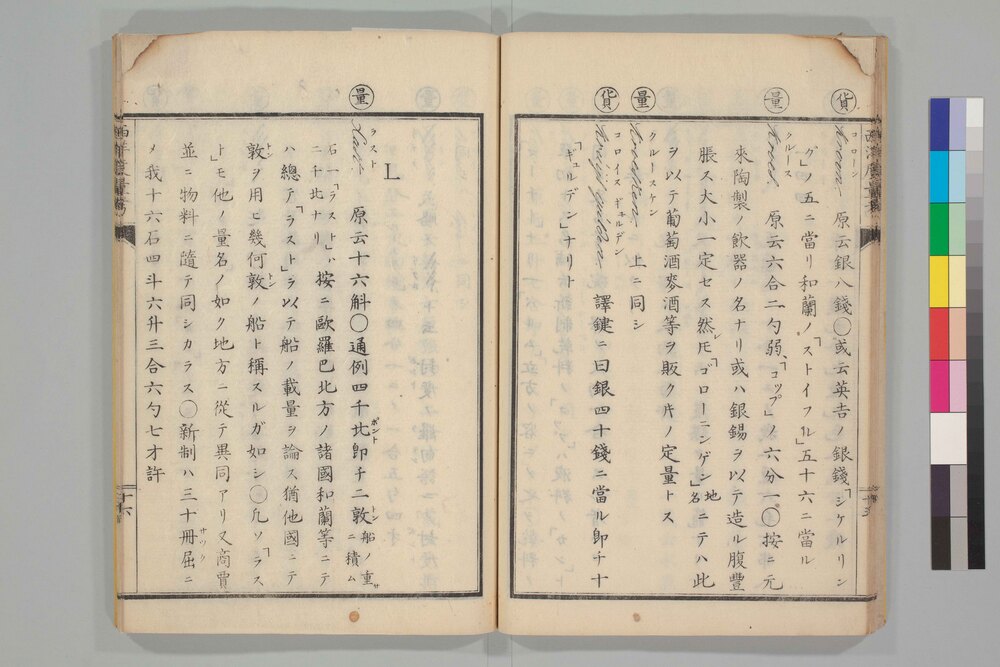 貨
コローン
Kroon 原云銀八錢〇或云英吉ノ銀錢「シケルリン
グ」四「五ニ當リ和蘭ノ「ストイフル」五十六ニ當ル
量
クルース
Kroes. 原云六合二勺弱、「コップ」ノ六分一〇按ニ元
來陶製ノ飲器ノ名ナリ或ハ銀錫ヲ以テ造ル腹豐
脹ス大小一定セス然レ𪜈「ゴローニンゲン」地名ニテハ此
ヲ以テ葡萄酒麥酒等ヲ販クトキノ定量トス
量
クルースケン
Kroesken 上ニ同シ
貨
コロイス ギュルデン
Kruijsgulden 譯鍵ニ曰銀四十錢ニ當ル即チ十
「ギュルデン」ナリト
L
量
ラスト
Last 原云十六斛〇通例四千ポント即チ二敦トン船ノ重サニ積ム
石一「ラスト」ハ按ニ歐羅巴北方ノ諸國和蘭等ニテ
ニ千北ナリ
ハ總テ「ラスト」ヲ以テ船ノ載量ヲ論ス猶他國ニテ
敦トンヲ用ヒ幾何敦トンノ船ト稱スルガ如シ〇凡ソ「ラス
ト」モ他ノ量名ノ如ク地方ニ從テ異同アリ又商賈
並ニ物料ニ隨テ同シカラス〇新制ハ三十冊屈サックニ
メ我十六石四斗六升三合六勺七才許
十六